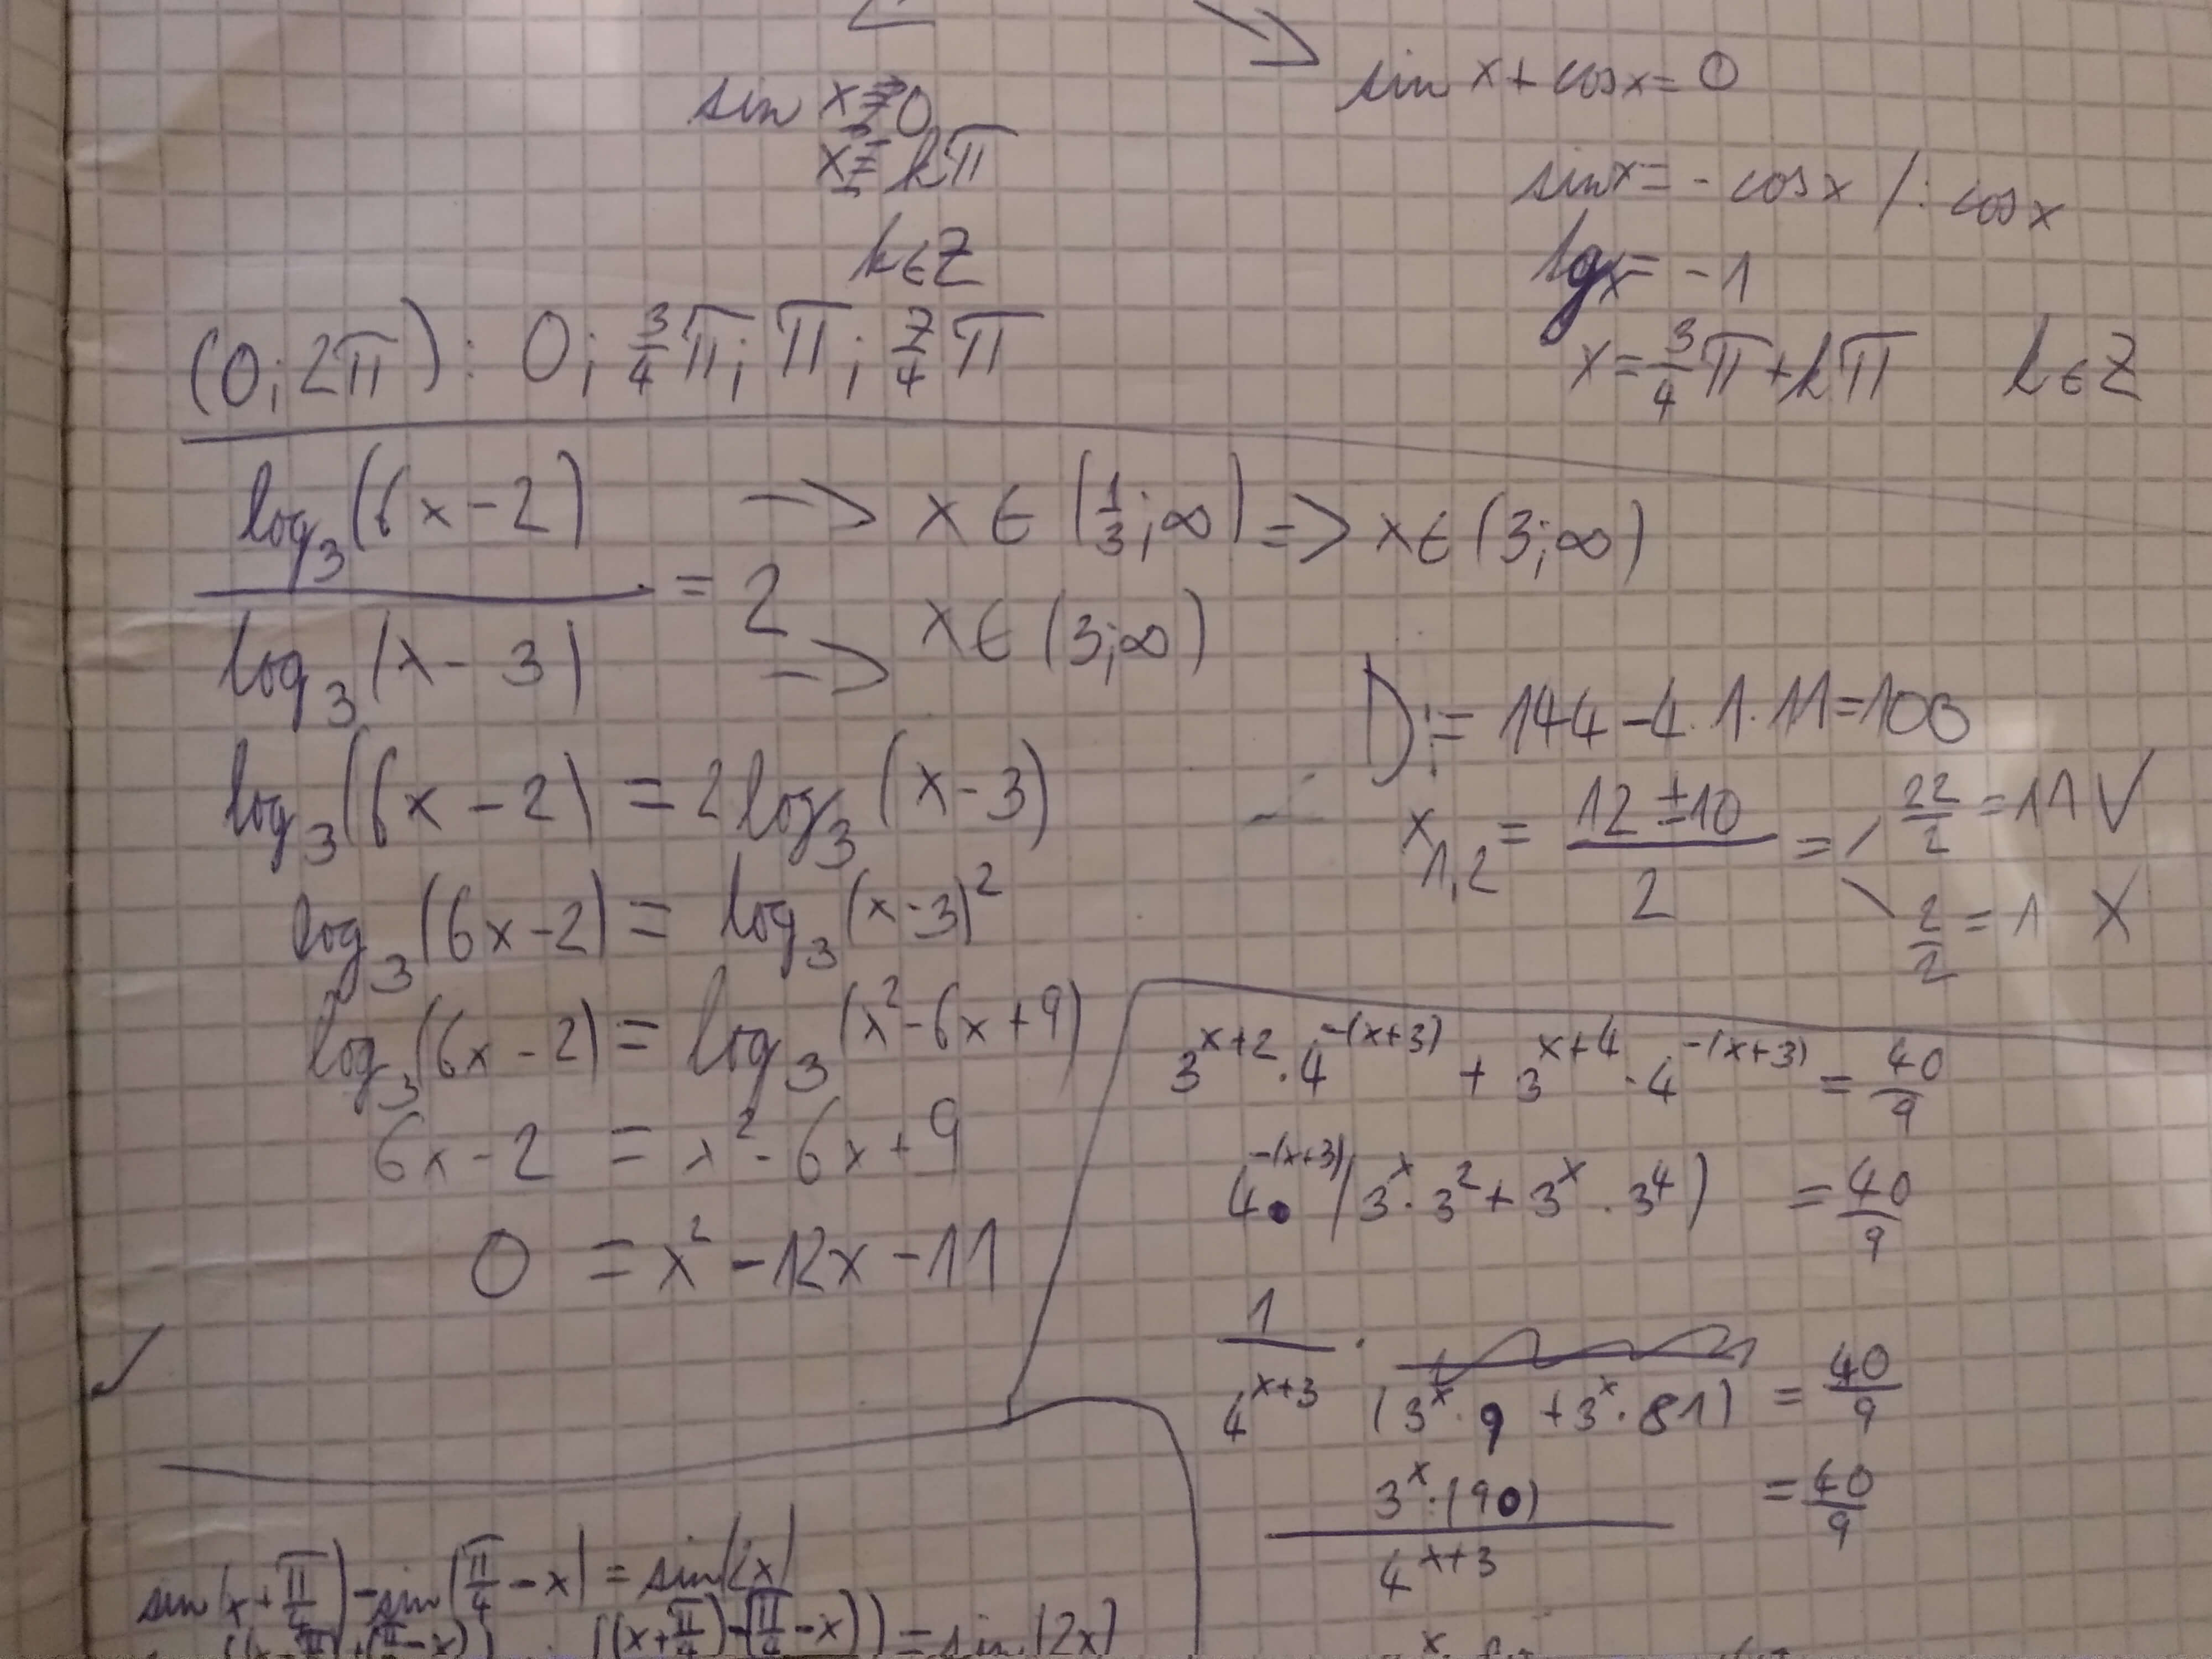 sin x = 0
x = kπ
k ∈ Z
sin x + cos x = 0
sin x = - cos x / : cos x
tg x = -1
x = 3/4 π + kπ   k ∈ Z
(0; 2π): 0; 3/4 π; π; 7/4 π
log₃(6x - 2) / log₃(x - 3) = 2
-> x ∈ (1/3; ∞) => x ∈ (3; ∞)
-> x ∈ (3; ∞)
log₃(6x - 2) = 2 log₃(x - 3)
log₃(6x - 2) = log₃(x - 3)²
log₃(6x - 2) = log₃(x² - 6x + 9)
6x - 2 = x² - 6x + 9
0 = x² - 12x - 11
D: = 144 - 4 · 1 · 11 = 100
x₁,₂ = (12 ± 10) / 2 = / 22/2 = 11 V
\ 2/2 = 1 X
3^(x+2) · 4^(-(x+3)) + 3^(x+4) · 4^(-(x+3)) = 40/9
4^(-(x+3)) · (3^x · 3² + 3^x · 3⁴) = 40/9
1/4^(x+3) · (3^x · 9 + 3^x · 81) = 40/9
3^x · (90) / 4^(x+3) = 40/9
sin(x + π/4) - sin(π/4 - x) = sin(2x)
((x + π/4) - (π/4 - x)) = sin(2x)